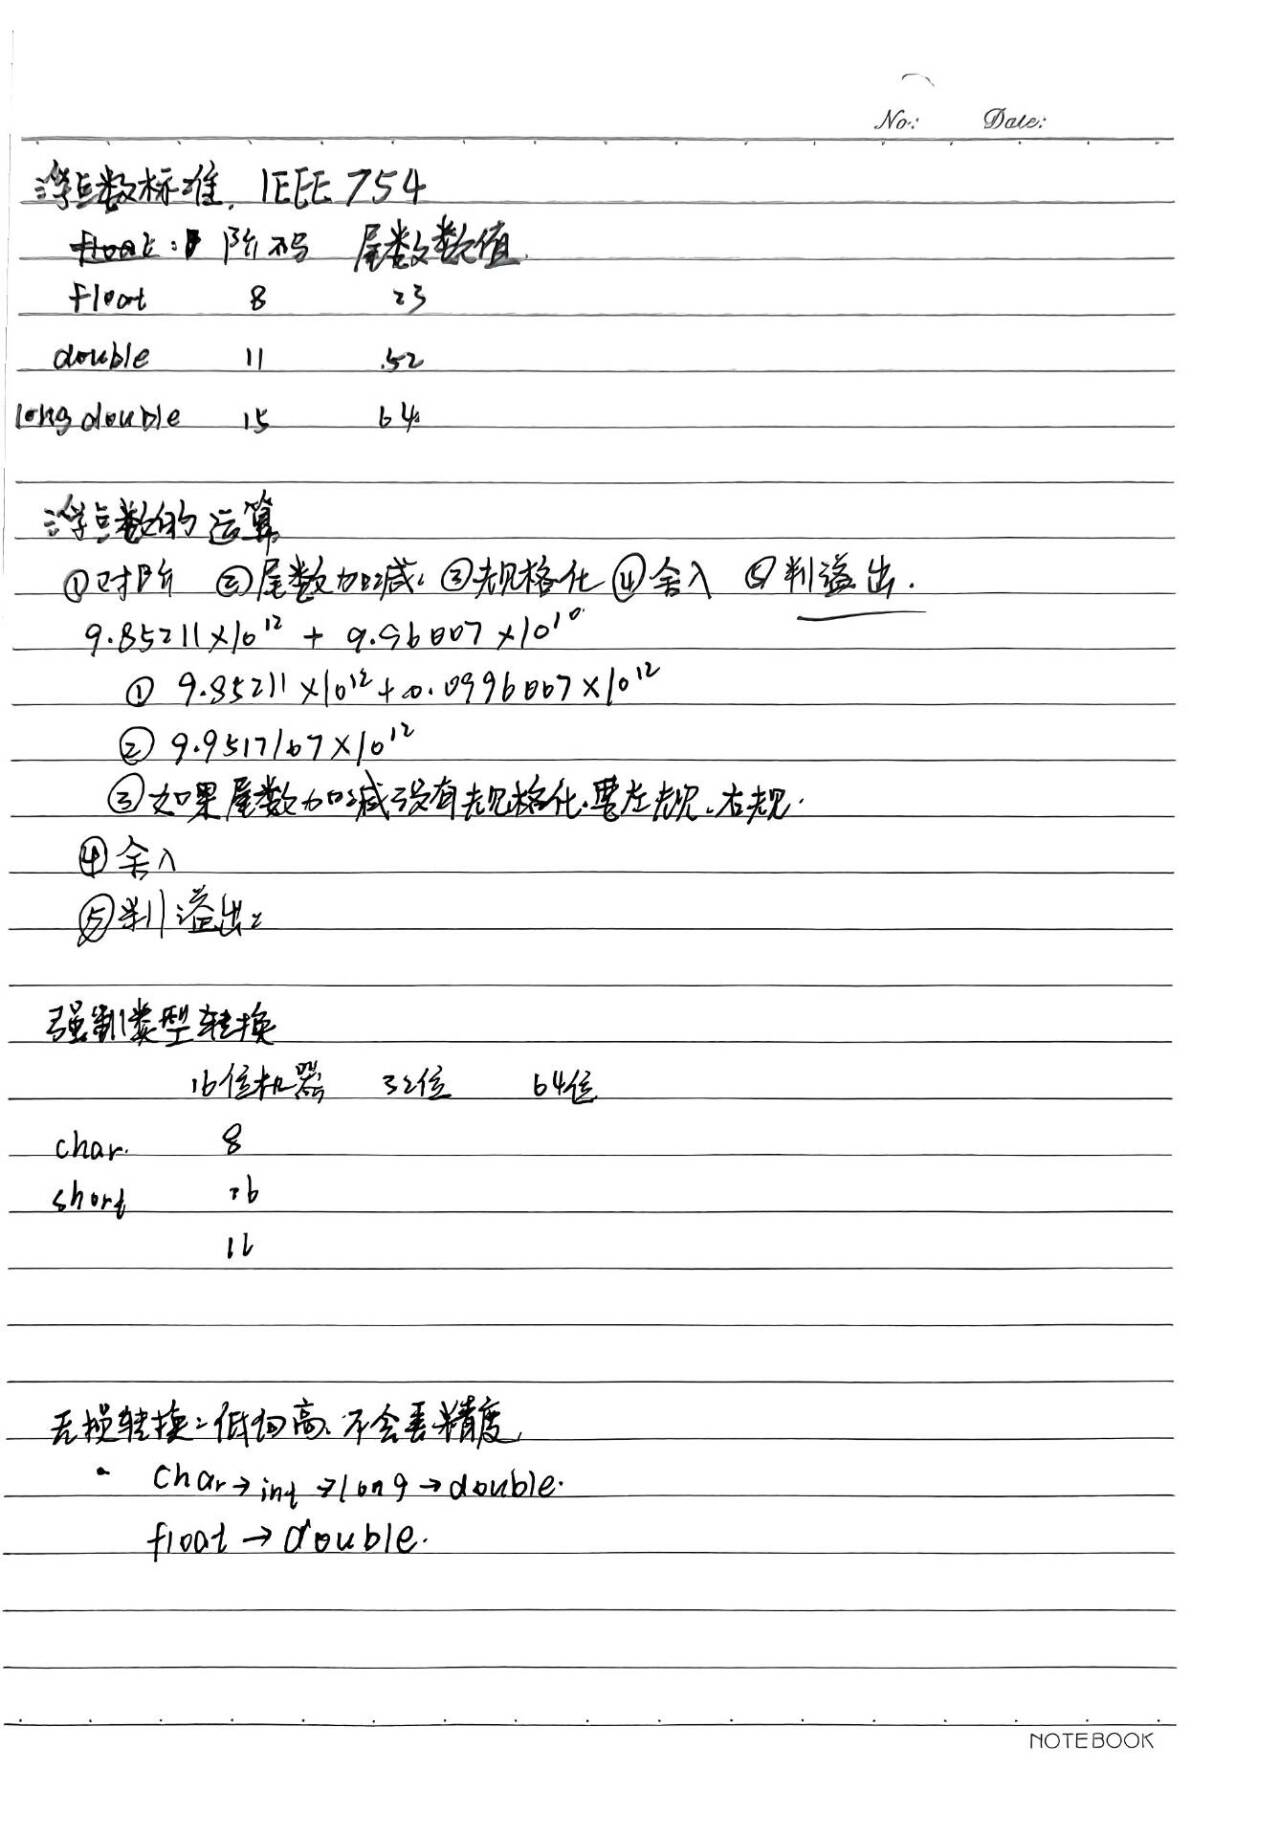 No: Date:
浮点数标准. IEEE 754
float: 阶码 尾数数值.
float 8 23
double 11 52
long double 15 64
浮点数的运算
①对阶 ②尾数加减. ③规格化 ④舍入 ⑤判溢出.
9.85211×10¹² + 9.96007×10¹⁰
① 9.85211×10¹²+0.0996007×10¹²
② 9.9517107×10¹²
③如果尾数加减没有规格化.要左规.右规.
④舍入
⑤判溢出:
强制类型转换
16位机器 32位 64位
char. 8
short 16
16
无损转换:低向高.不会丢精度
· char→int→long→double.
float→double.
NOTEBOOK